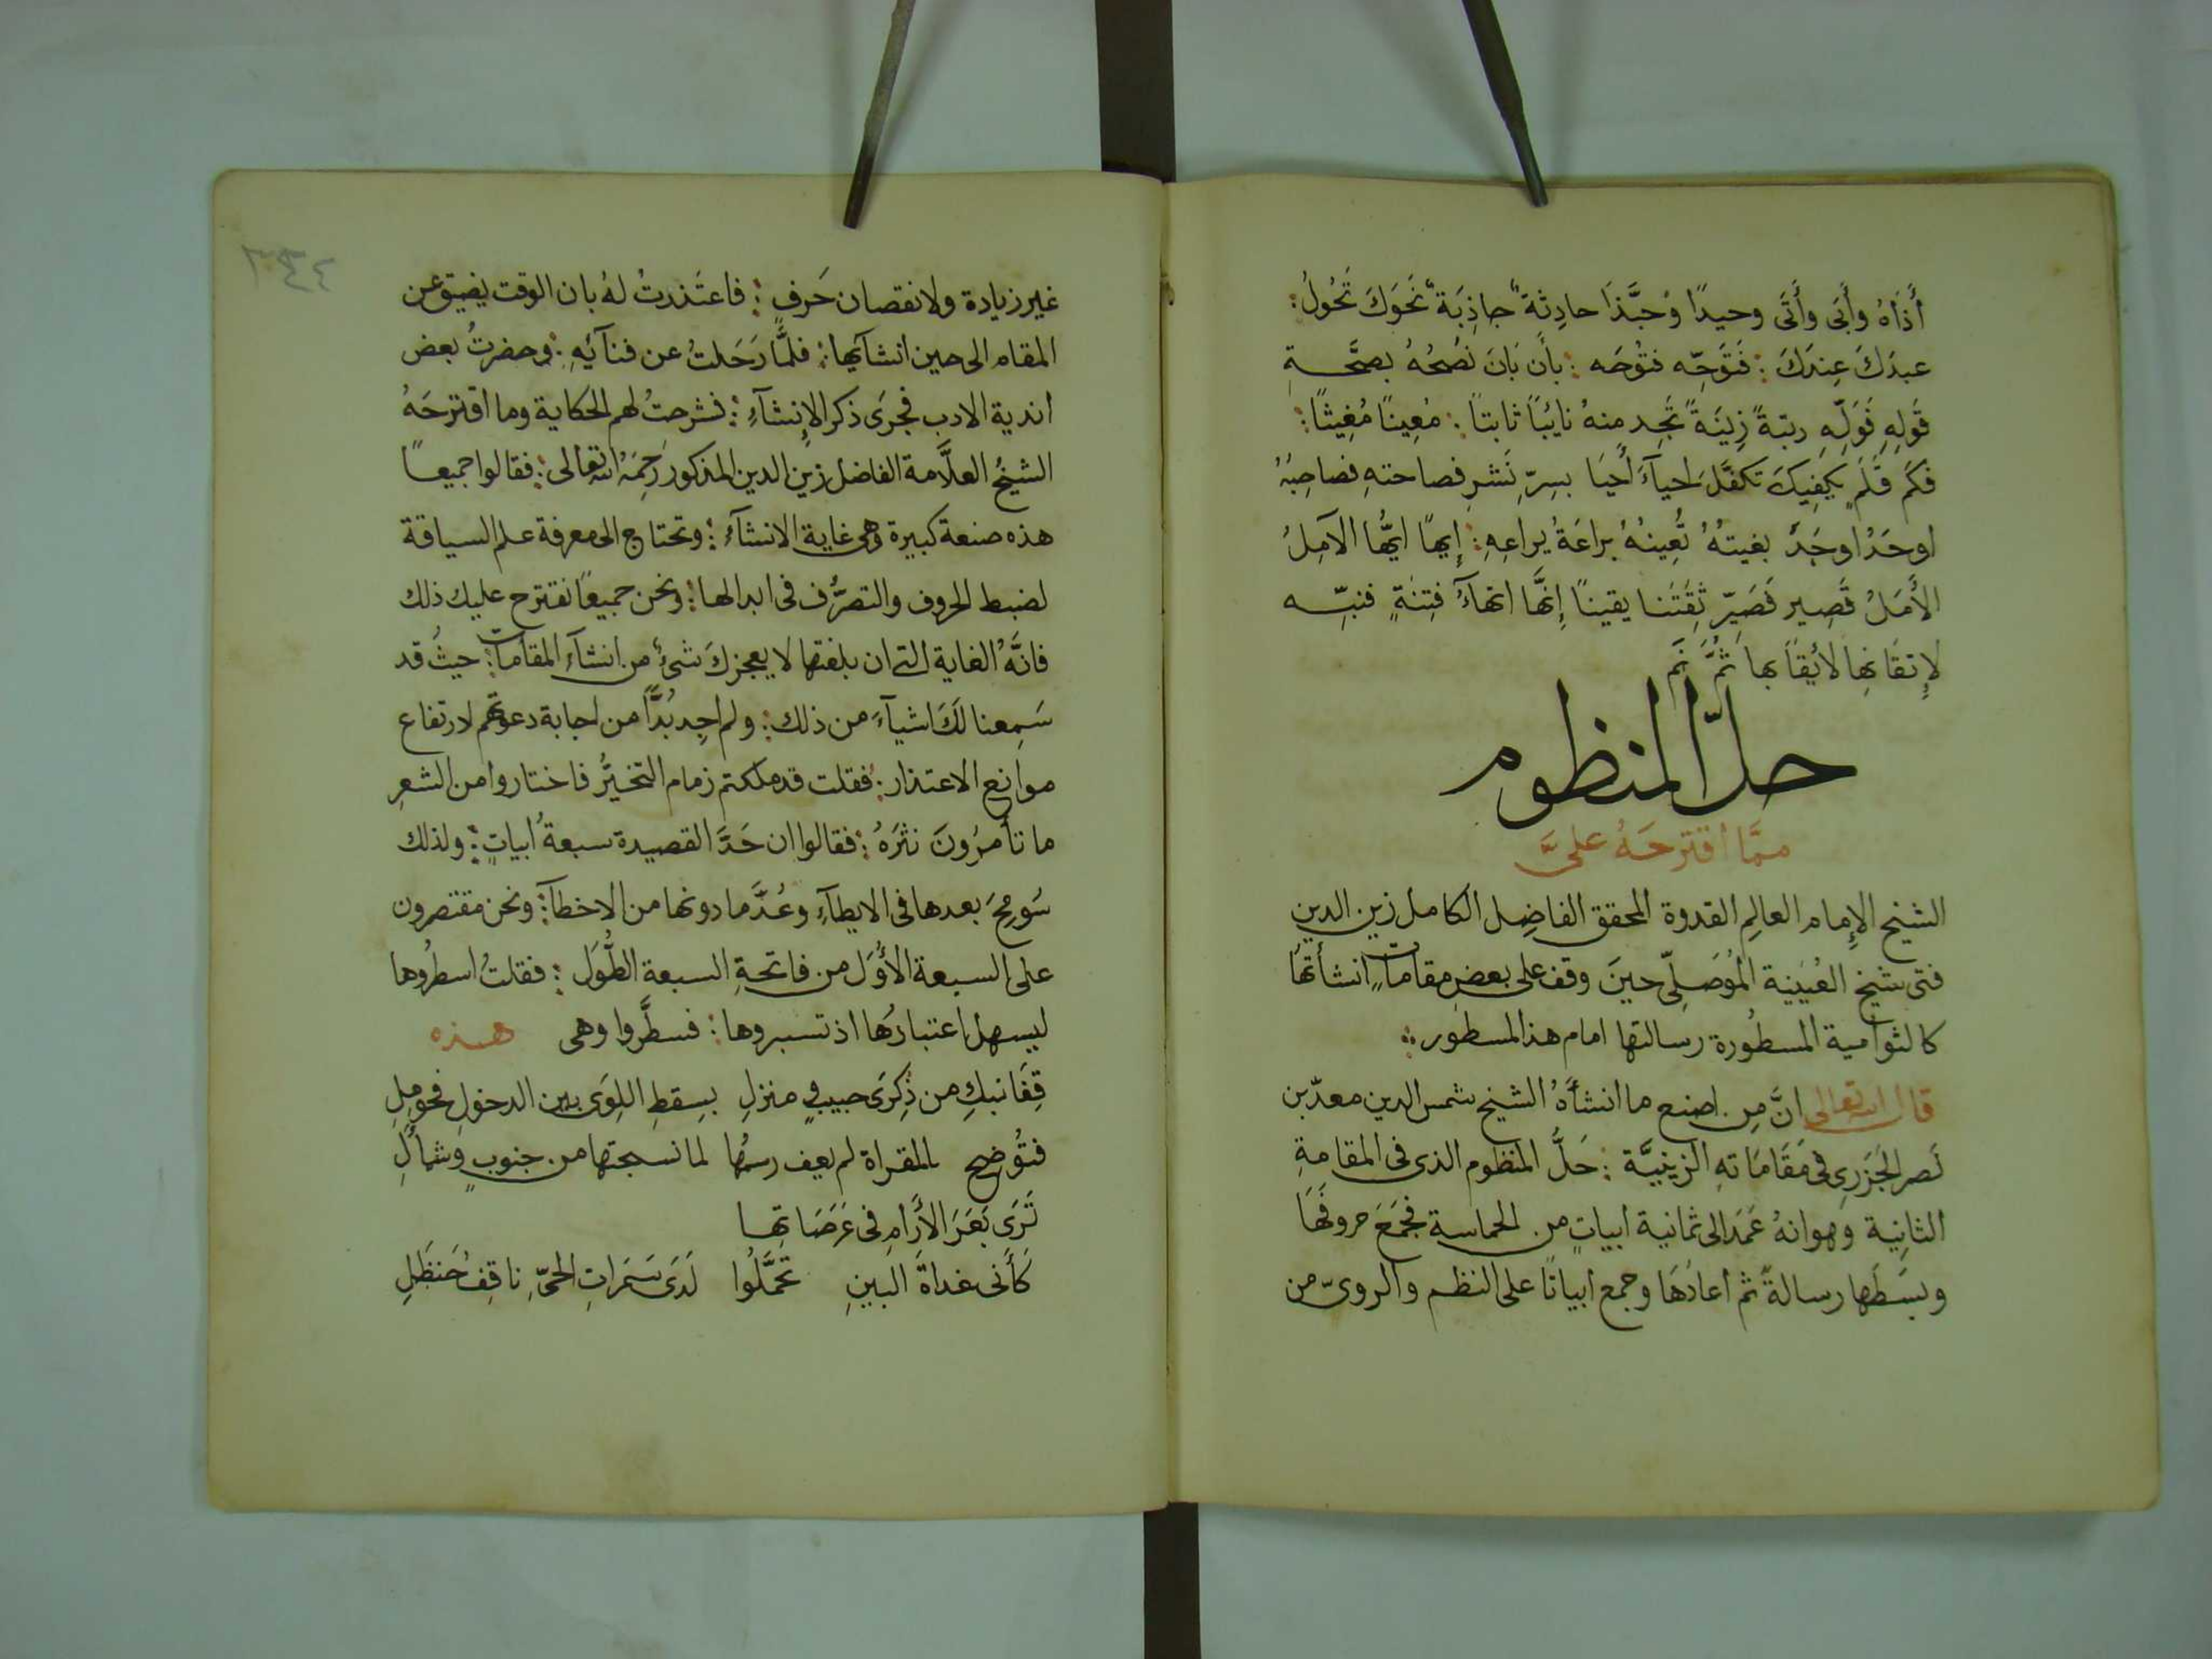 أَذَاهُ وأَبَى وأَتَى وحيدًا وُحبَّذَا حادِثةً جاذِبَةً نَحوَكَ تَحُولُ:
عبدَكَ عِندَكَ: فَتَوَجِّه فتُوجَه: بأَن بَانَ نصُحُهُ بصحَّةِ
قَولِهِ فَوَلِّهِ رتبةً زِينَةً تَجِد منهُ نايبًا ثابتًا: مُعِينًا مُغِيثًا:
فكَم قَلَمٍ يكفِيكَ تكفَّلَ احيآءَ أَحيَا بسِرِّ نَشرِ فصاحتهِ فصاحِبُهُ
اوحَدُ اوجَدَ بغيتهُ تُعِينهُ براعَةُ يراعِهِ: إِيهًا ايُّها الآمِلُ
الأَمَلُ قَصِير فَصَيِّر ثِقَتَنا يقينًا إِنَّها انهآءُ فِتنَةٍ فنبِّه
لإِتقَانِها لأيقاَ بها ثُمَّ نَم
حلّ المنظوم
ممَّا اقترحَهُ علىَّ
الشيخ الإِمام العالِم القدوة المحقق الفاضِل الكامل زين الدين
فتى شيخ العُيَينِة المُوصَلِّى حينَ وقف على بعض مقاماتٍ انشأتها
كالتوامية المسطُورة رسالتها امام هذا المسطور:
قال الله تعالى انَّ مِن اصنع ما انشأهُ الشيخ شمس الدين معدّ بن
نَصر الجَزَرِى فى مَقَامَاتهِ الزينِيَّة: حَلُّ المنظوم الذى فى المقامةِ
الثانِية وهو انهُ عَمَدَ الى ثمانية ابياتٍ من الحماسة فجَمَعَ حروفَها
وبسَطَها رسالةً ثم أعادَهَا وجمع ابياتًا على النظم والروىّ من
٢٣٤
غير زيادة ولا نقصان حَرفٍ: فاعتَذرتُ لهُ بان الوقت يضيق عن
المقام الى حين انشآئها: فلمَّا رَحَلتُ عن فنآئهِ: وحضرتُ بعض
اندية الادب فجرَى ذكر الإِنشآءِ: فشرحتُ لهم الحكاية وما اقترحَهُ
الشيخُ العلَّامة الفاضل زين الدين المذكور رَحِمَهُ الله تعالى: فقالوا جميعًا
هذه صنعة كبيرة وهى غاية الانشآءِ: وتحتاج الى معرفة علم السياقة
لضبط الحروف والتصرُّف فى ابدالها: ونحن جميعًا نقترح عليك ذلك
فانَّهُ الغاية التى ان بلغتها لا يعجزكَ شىءٌ من انشآءِ المقامات: حيثُ قد
سَمِعنا لَكَ اشيآءَ من ذلك: ولم اجِد بُدًّا من اجابة دعوتهم لارتفاع
موانع الاعتذار: فقلت قد ملكتم زمام التخيُّر فاختاروا من الشعرِ
ما تأمرُونَ نثرَهُ: فقالوا ان حَدَّ القصيدة سبعةُ ابياتٍ: ولذلك
سُومِحَ بعدها فى الايطآءِ وعُدَّ ما دونها من الاخطآ: ونحن مقتصرون
على السبعة الأُوَل من فاتحةِ السبعة الطُّوَل: فقلتُ اسطُروها
ليسهل اعتبارُها اذ تسبروها: فسطَّروا وهى هذه
قِفَا نبكِ من ذِكرَى حبيبٍ ومنزلِ بسِقطِ اللِوَى بين الدخولِ فحوملِ
فتُوضِح فالمقراة لم يعف رسمُها لما نسجتها من جنوبٍ وشمألِ
تَرَى بَعَرَ الأَرَامِ فى عَرَصَاتِها
كَأَنى غداةَ البينِ تحَمَّلُوا لَدَى سَمَراتِ الحىِّ ناقِفُ حَنظَلِ